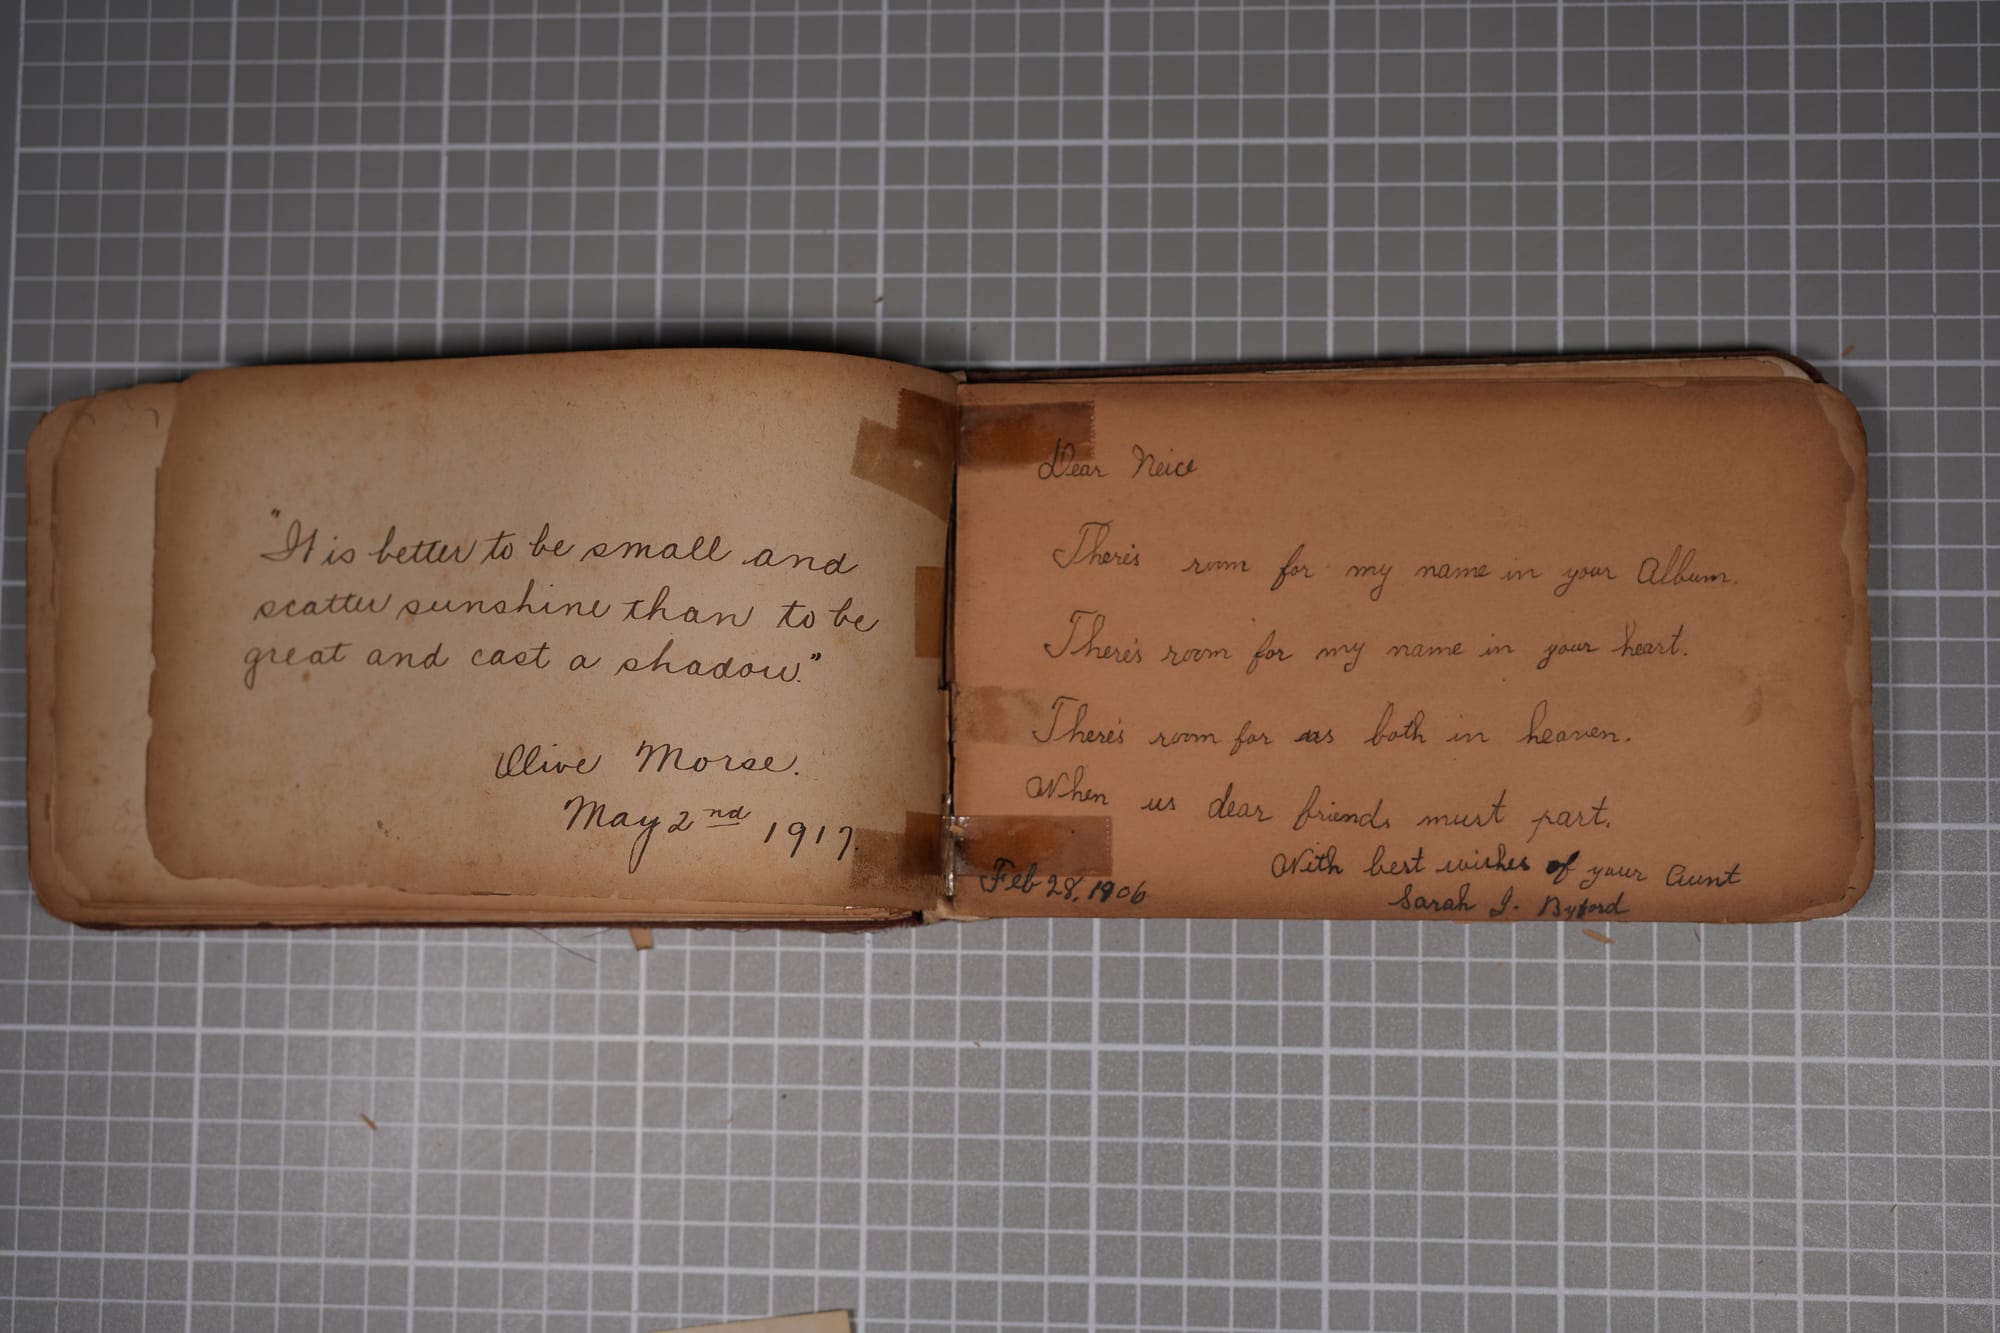 "It is better to be small and
scatter sunshine than to be
great and cast a shadow."
Olive Morse.
May 2nd 1917.
Dear Neice
There's room for my name in your Album.
There's room for my name in your heart.
There's room for us both in heaven.
When us dear friends must part.
With best wishes of your Aunt
Sarah J. Byford
Feb 28, 1906